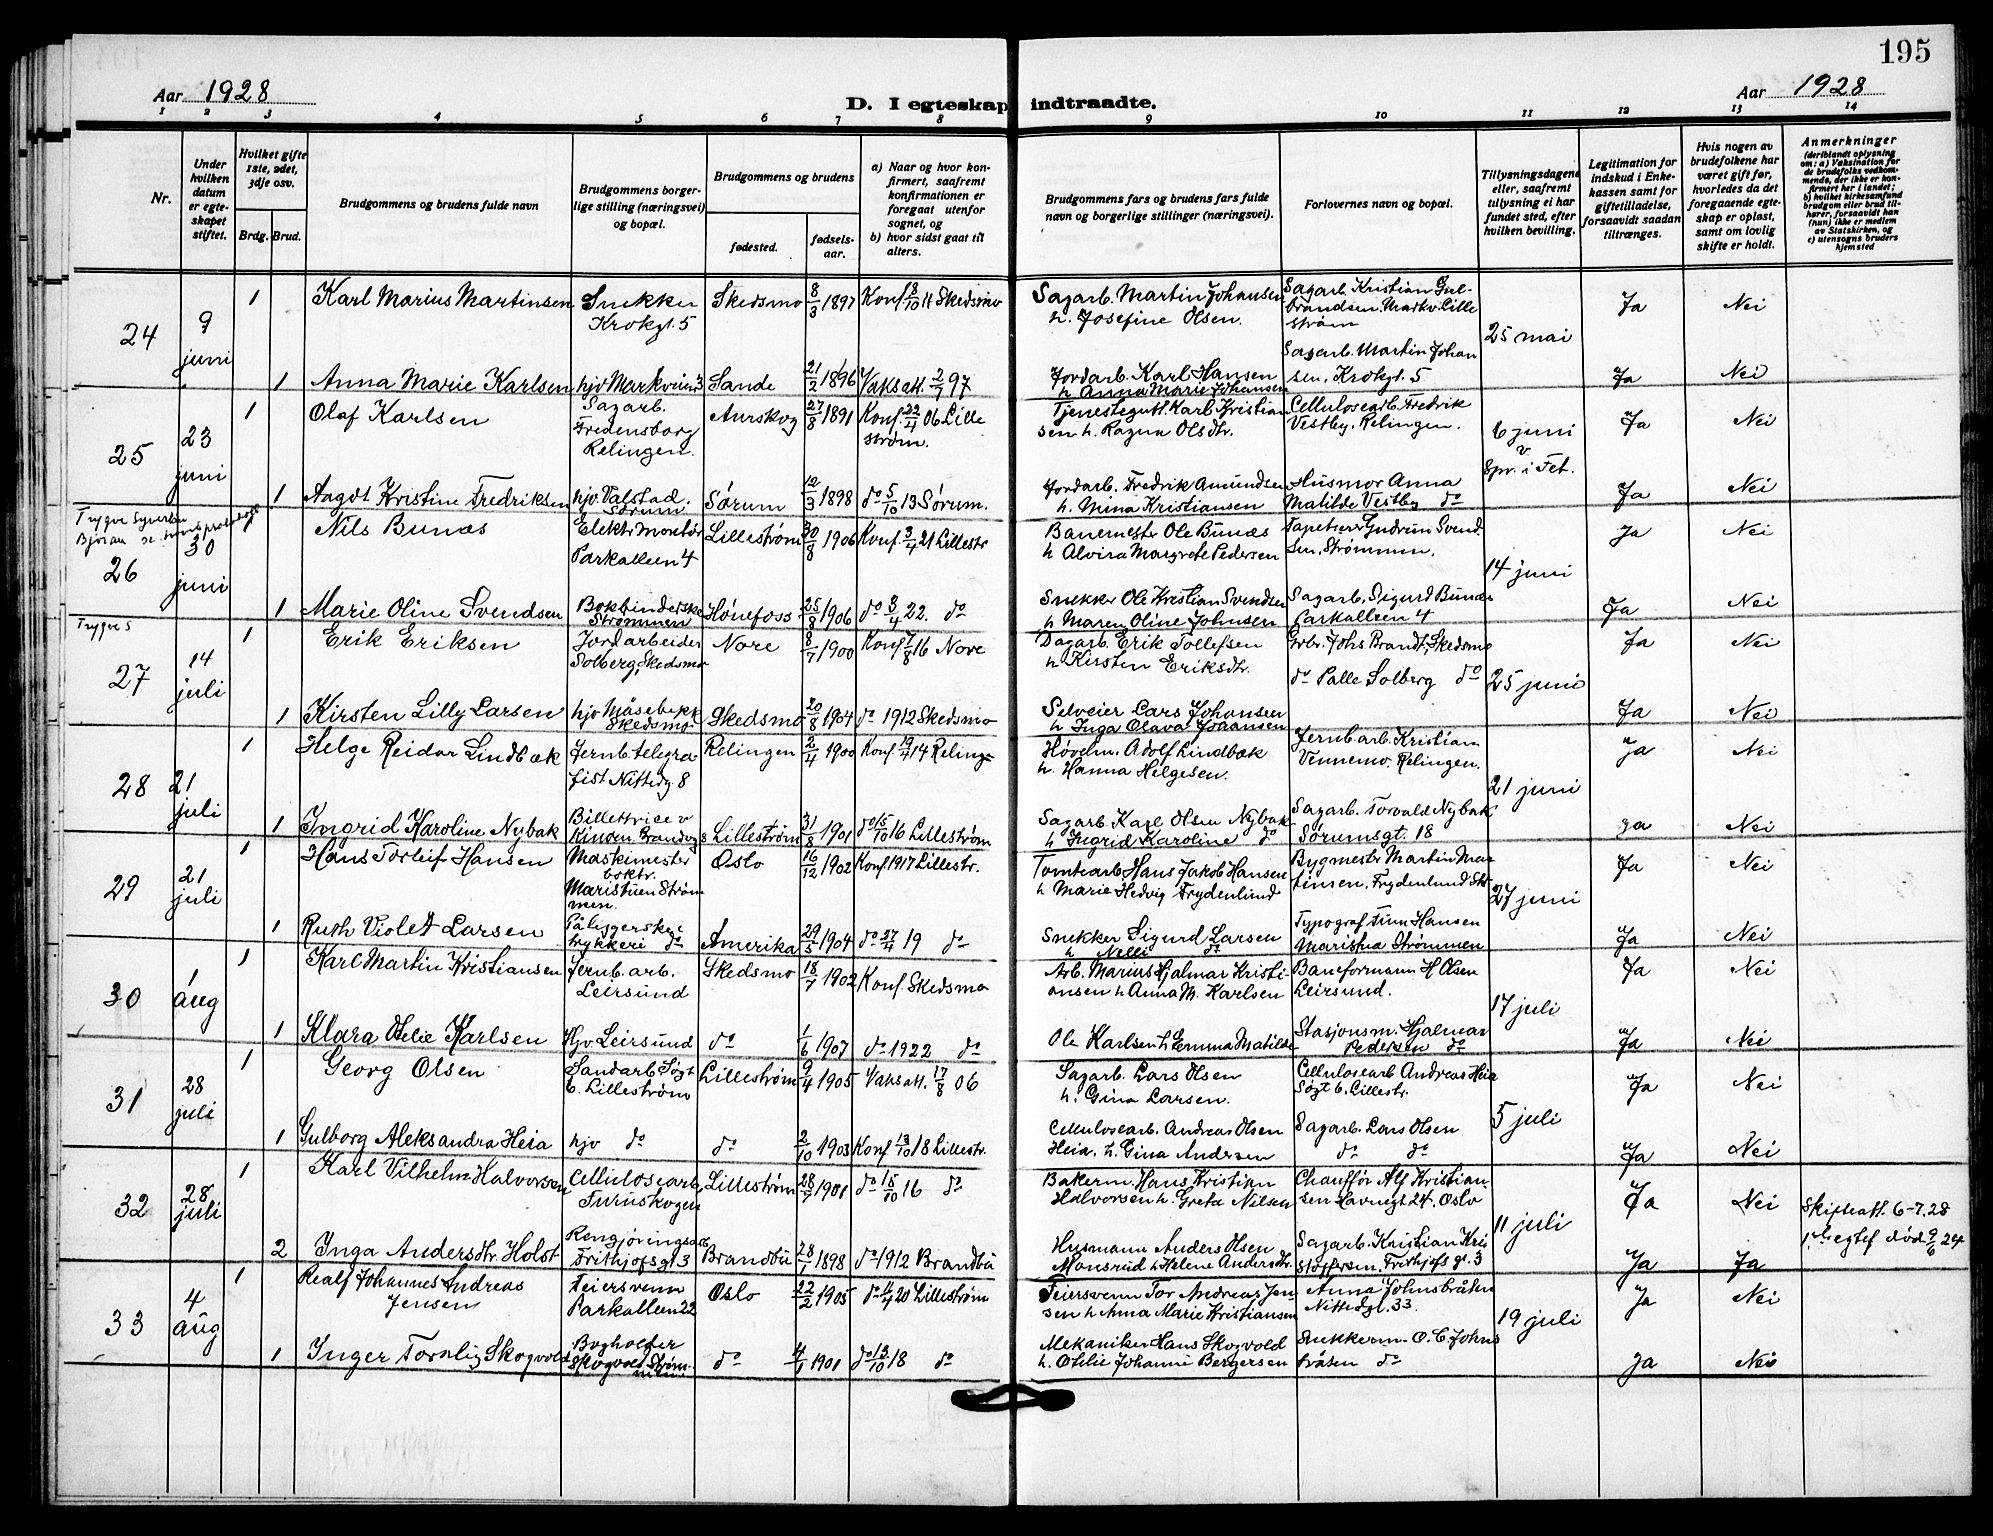 195
Aar 1928
D. I egteskap indtraadte.
Aar 1928
1 2 3 4 5 6 7 8 9 10 11 12 13 14
Nr.
Under hvilken datum er egteskapet stiftet.
Hvilket gifte 1ste, 2det, 3dje osv.
Brdg. Brud.
Brudgommens og brudens fulde navn
Brudgommens borgerlige stilling (næringsvei) og bopæl.
Brudgommens og brudens
fødested.
fødselsaar.
a) Naar og hvor konfirmert, saafremt konfirmationen er foregaat utenfor sognet, og
b) hvor sidst gaat til alters.
Brudgommens fars og brudens fars fulde navn og borgerlige stillinger (næringsvei).
Forlovernes navn og bopæl.
Tillysningsdagene eller, saafremt tilysning ei har fundet sted, efter hvilken bevilling.
Legitimation for indskud i Enkekassen samt for giftetilladelse, forsaavidt saadan tiltrænges.
Hvis nogen av brudefolkene har været gift før, hvorledes da det foregaaende egteskap er opløst, samt om lovlig skifte er holdt.
Anmerkninger
(deriblandt oplysning om: a) Vaksination for de brudefolks vedkommende, der ikke er konfirmert her i landet; b) hvilket kirkesamfund brudgom eller brud tilhører, forsaavidt han (hun) ikke er medlem av Statskirken, og c) utensogns bruders hjemsted
24 9 juni 1 Karl Marius Martinsen Snekker Krokgt. 5 Skedsmo 8/3 1897 Konf. 8/10 11 Skedsmo Sagarb. Martin Johansen h. Josefine Olsen. Sagarb. Kristian Gulbrandsen. Markv. Lillestrøm 25 mai Ja Nei
1 Anna Marie Karlsen hjv Markveien 3 Sande 21/2 1896 Vaksatt. 2/7 97 Jordarb. Karl Hansen h. Anna Marie Johansen Sagarb. Martin Johansen, Krokgt. 5 Ja Nei
25 23 juni 1 Olaf Karlsen Sagarb. Fredensborg Relingen. Aurskog 27/8 1891 Konf. 22/4 06 Lillestrøm. Tjenestegutt. Karl Kristiansen h. Ragna Olsdtr. Cellulosearb. Fredrik Vestby, Relingen. 6 juni v. Spr. i Fet. Ja Nei
1 Aagot Kristine Fredriksen hjv. Valstad. Sørum Sørum 12/3 1898 do 5/10 13 Sørum. Jordarb. Fredrik Amundsen h. Mina Kristiansen Husmor Anna Matilde Vestby do Ja Nei
Trygve
26 30 juni Nils Bunæs Elektr. Montør Parkalleen 4 Lillestrøm 30/8 1906 Konf. 3/4 21 Lillestr Banemester Ole Bunæs h Alvira Margrete Pedersen Tapetserer Gudrun Svendsen, Strømmen. 14 juni Ja Nei
1 Marie Oline Svendsen Bokbinderske Strømmen Hønefoss 25/8 1906 do 3/4 22. do Snekker Ole Kristian Svendsen h Maren Oline Johnsen Sagarb. Sigurd Bunæs Parkalleen 4 Ja Nei
Trygve S
27 14 juli 1 Erik Eriksen Jordarbeider Solberg, Skedsmo Nore 8/7 1900 Konf 7/8 16 Nore Dagarb. Erik Tollefsen h Kirsten Eriksdtr. Grbr. Johs Brandt, Skedsmo 25 juni Ja Nei
1 Kirsten Lilly Larsen hjv Måsebekk Skedsmo Skedsmo 20/8 1904 do 1912 Skedsmo Selveier Lars Johansen h Inga Olava Johansen do Palle Solberg do Ja Nei
28 21 juli 1 Helge Reidar Lindbæk Jernb. telegrafist Nittedg 8 Relingen 2/4 1900 Konf 19/4 14 Reling Høvelm. Adolf Lindbæk h. Hanna Helgesen. Jernb arb. Kristian Vennemo. Relingen. 21 juni Ja Nei
1 Ingrid Karoline Nybak Billettrice v Kinoen. Brandvg 8 Lillestrøm 31/8 1901 do 15/10 16 Lillestrøm Sagarb Karl Olsen Nybak h Ingrid Karoline do Sagarb. Torvald Nybak Sørumsgt. 18 Ja Nei
29 21 juli 1 Hans Torleif Hansen Maskimester boktr. Maristuen Strømmen. Oslo 16/12 1902 Konf. 1917 Lillestr. Tomtearb. Hans Jakob Hansen h Marie Hedvig Frydenlund Bygmestr Martin Martinsen. Frydenlund Str 27 juni Ja Nei
1 Ruth Violet Larsen Påliggerske i trykkeri do Amerika 29/5 1904 do 27/4 19 do Snekker Sigurd Larsen h Nelli do Typograf Finn Hansen Maristua Strømmen Ja Nei
30 1 aug 1 Karl Martin Kristiansen Jernb. arb. Leirsund Skedsmo 18/7 1902 Konf Skedsmo Arb. Marius Hjalmar Kristiansen h Anna M. Karlsen Baneformann H Olsen Leirsund. 17 juli Ja Nei
1 Klara Otelie Karlsen Hjv Leirsund do 1/6 1907 do 1922 do Ole Karlsen h Emma Matilde Stasjonsm. Hjalmar Pedersen do Ja Nei
31 28 juli 1 Georg Olsen Sandarb Søgt 6. Lillestrøm Lillestrøm 9/4 1905 Vaksatt. 17/8 06 Sagarb. Lars Olsen h. Gina Larsen. Cellulosearb Andreas Heia Søgt 6. Lillestr. 5 juli Ja Nei
1 Gulborg Aleksandra Heia hjv do do 2/10 1903 Konf 13/10 18 Lillestr. Cellulosearb. Andreas Olsen Heia. h. Gina Andersen Sagarb. Lars Olsen do do Ja Nei
32 28 juli 1 Karl Vilhelm Halvorsen Cellulosearb Furuskogen Lillestrøm 28/7 1901 do 15/10 16 do Bakerm. Hans Kristian Halvorsen h. Greta Nilsen Chauffør Alf Kristiansen Havnegt 24. Oslo 11 juli Ja Nei Skifteatt. 6-7.28
2 Inga Andersdtr. Holst Rengjøringsarb Frithjofsgt 3 Brandbu 28/1 1898 do 1912 Brandbu Husmann Anders Olsen Monsrud h Helene Andersdtr. Sagarb. Kristian Kristoffersen. Frithjofs gt. 3 Ja Ja 1ste egtef død 9/6 24
33 4 aug 1 Realf Johannes Andreas Jensen Feiersvenn Parkalleen 22 Oslo 22/2 1905 do 11/4 20 Lillestrøm Feiersvenn Tor Andreas Jensen h Anna Marie Kristiansen Anna Johnsbråten Nittedgt. 33. 19 juli Ja Nei
1 Inger Tornlig Skogvold Bogholder Skogvold Strømmen. do 4/1 1901 do 13/10 18 do Mekaniker Hans Skogvold h. Otelie Johanne Bergersen Snekkerm. O. C. Johnsbråten do Ja Nei